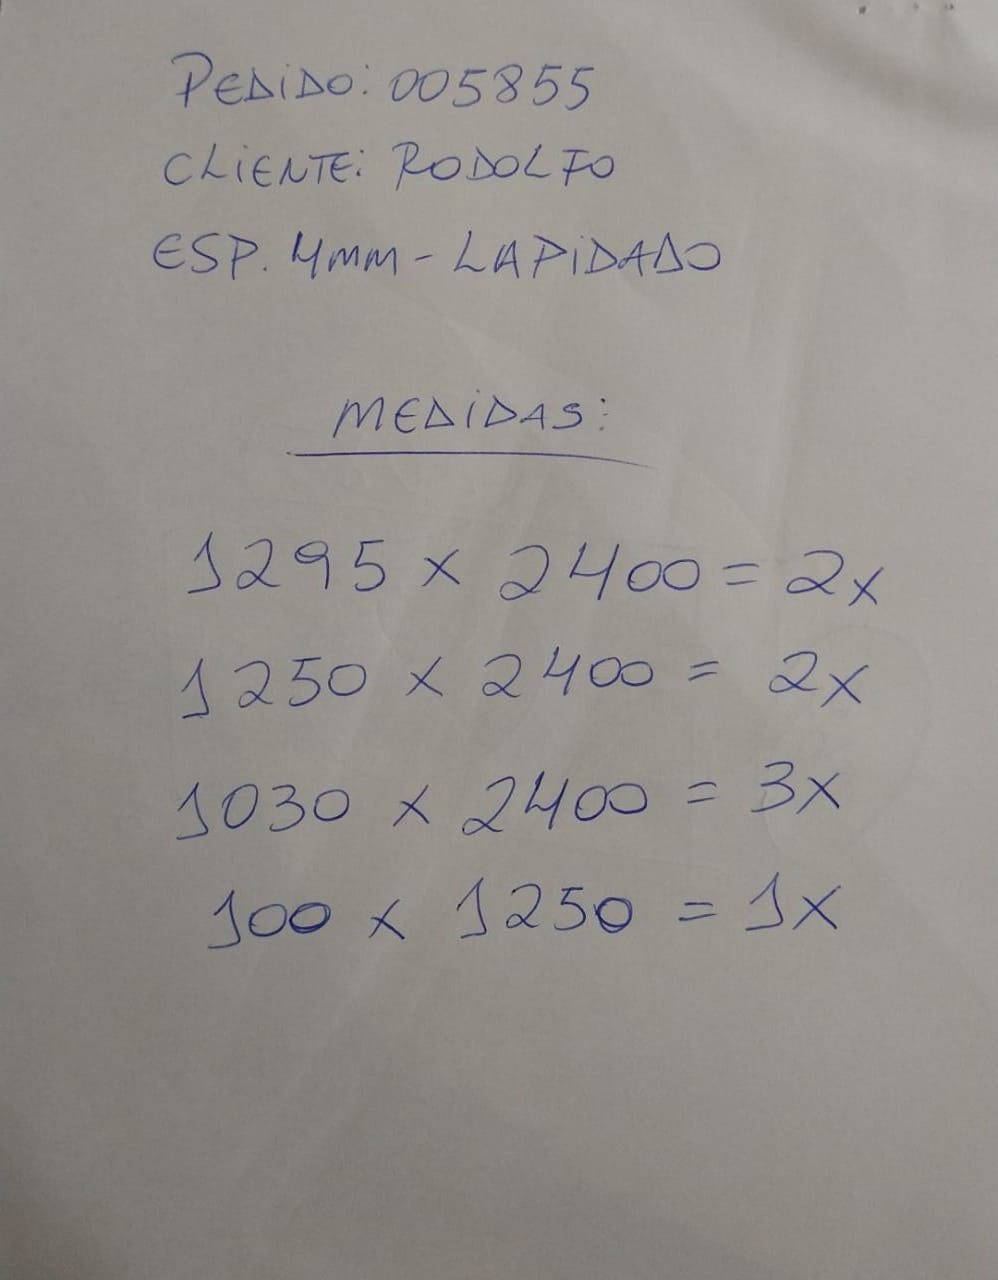 PEDIDO: 005855
CLIENTE: RODOLFO
ESP. 4mm - LAPIDADO
MEDIDAS:
1295 x 2400 = 2x
1250 x 2400 = 2x
1030 x 2400 = 3x
100 x 1250 = 1x